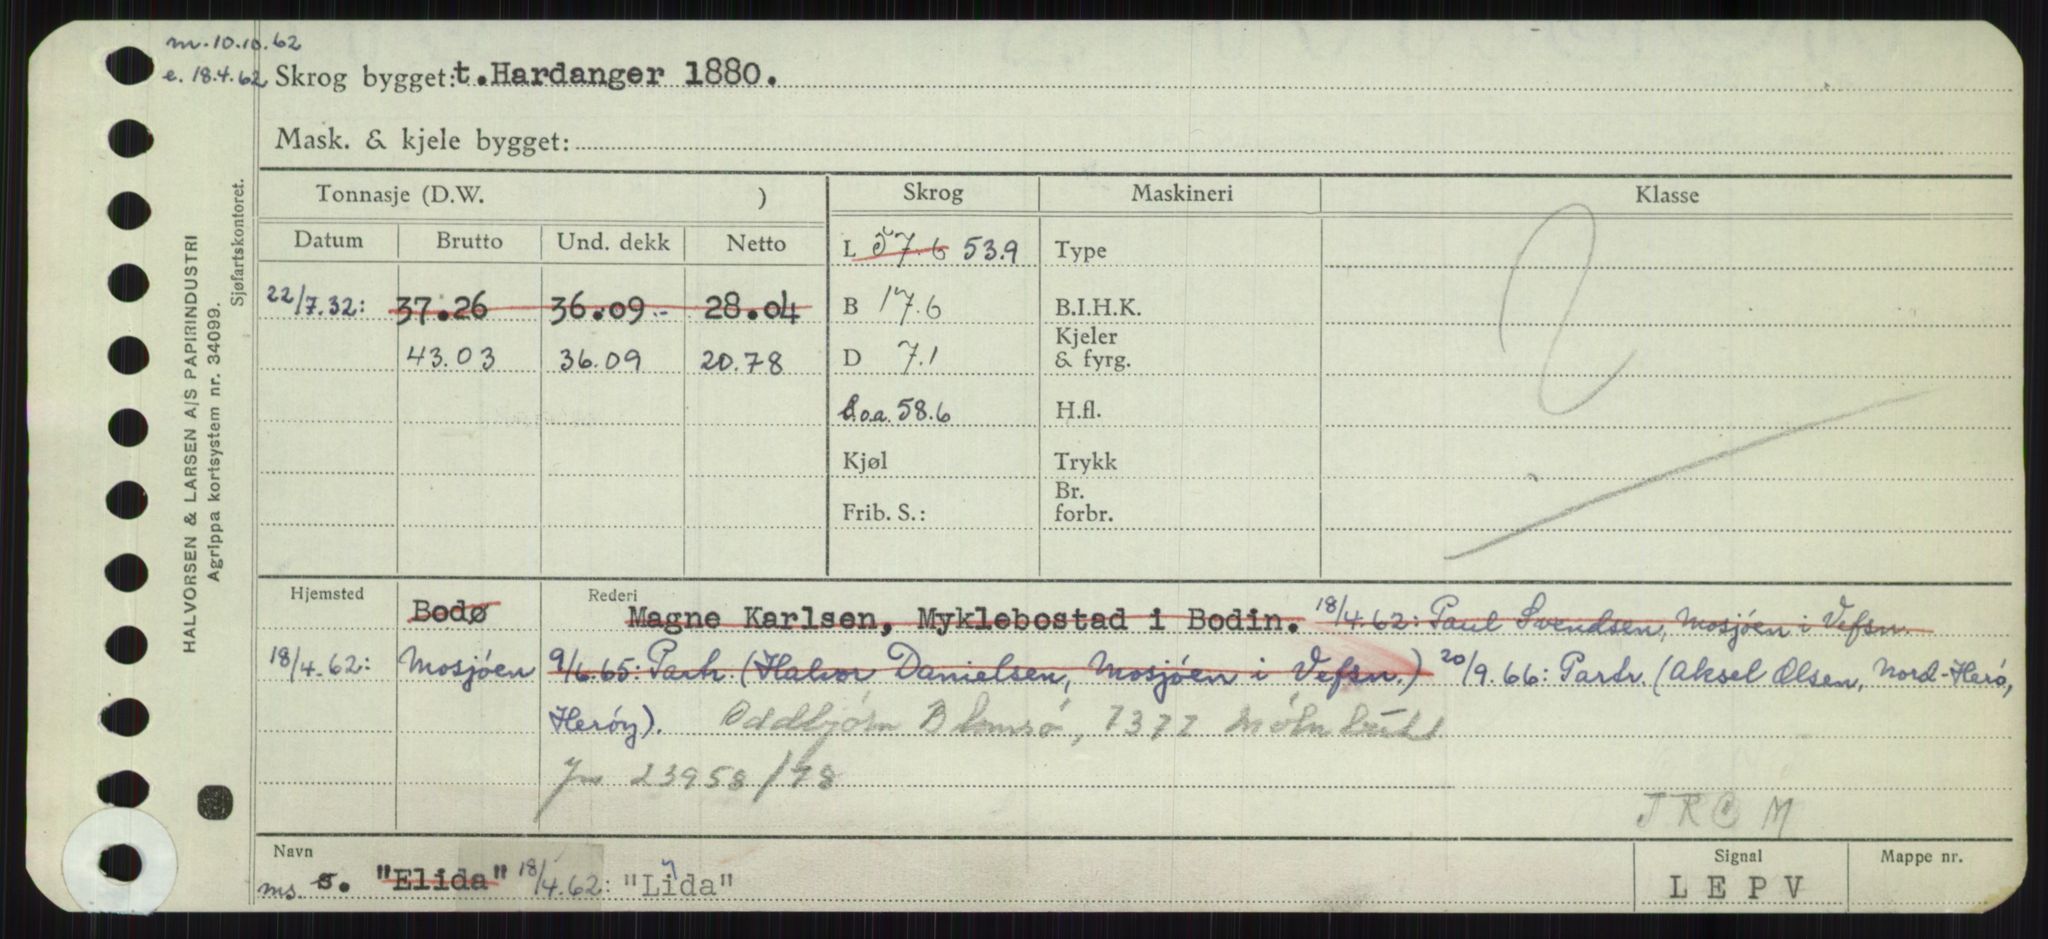 m. 10.10.62
e. 18.4.62 Skrog bygget: t.Hardanger 1880.
Mask. & kjele bygget:
HALVORSEN & LARSEN A/S PAPIRINDUSTRI
Agrippa kortsystem nr. 34099.
Sjøfartskontoret.
Tonnasje (D.W. ) Skrog Maskineri Klasse
Datum Brutto Und. dekk Netto L 57.6 53.9 Type
22/7.32: 37.26 36.09.- 28.04 B 17.6 B.I.H.K.
43.03 36.09 20.78 D 7.1 Kjeler & fyrg.
l.o.a. 58.6 H.fl.
Kjøl Trykk
Frib. S.: Br. forbr.
Hjemsted Bodø Rederi Magne Karlsen, Myklebostad i Bodin. 18/4.62: Paul Svendsen, Mosjöen i Vefsn.
18/4.62: Mosjöen 9/6.65: Partr. (Halvor Danielsen, Mosjöen i Vefsn.) 20/9.66: Partr. (Aksel Olsen, Nord-Herö,
Heröy). Oddbjörn
23958/78
J R M
Navn Signal Mappe nr.
ms. s. "Elida" 18/4.62: "Lida" L E P V